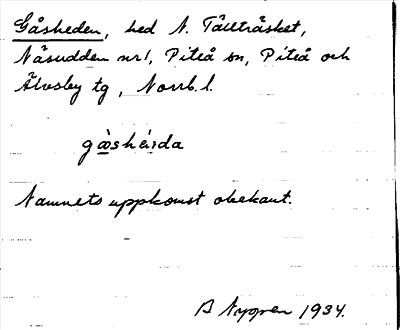 Gåsheden, hed N. Tällträsket,
Näsudden nr 1, Piteå sn, Piteå och
Älvsby tg, Norrb. l.
Namnets uppkomst obekant.
B Nygren 1934.